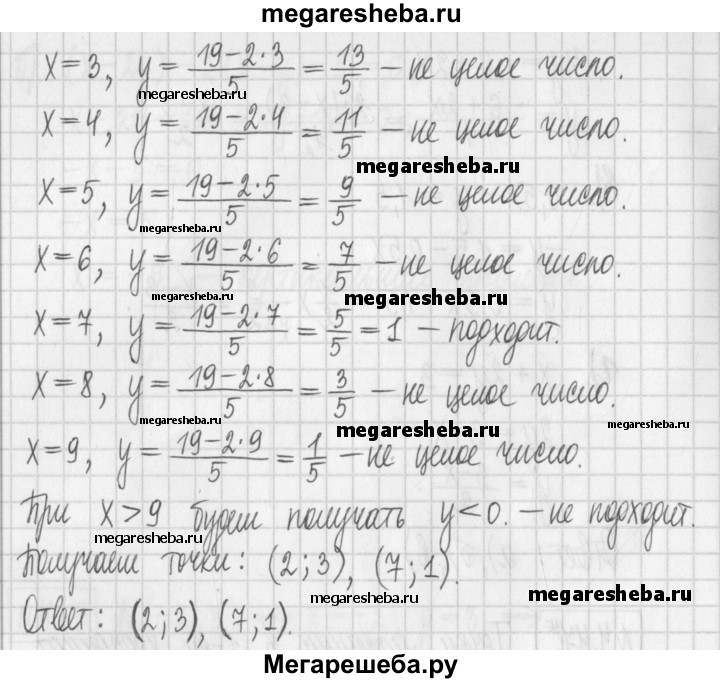 megaresheba.ru
x=3, y = (19-2·3)/5 = 13/5 – не целое число.
megaresheba.ru
x=4, y = (19-2·4)/5 = 11/5 – не целое число.
megaresheba.ru
x=5, y = (19-2·5)/5 = 9/5 – не целое число.
megaresheba.ru
x=6, y = (19-2·6)/5 = 7/5 – не целое число.
megaresheba.ru megaresheba.ru
x=7, y = (19-2·7)/5 = 5/5 = 1 – подходит.
x=8, y = (19-2·8)/5 = 3/5 – не целое число.
megaresheba.ru megaresheba.ru megaresheba.ru
x=9, y = (19-2·9)/5 = 1/5 – не целое число.
При x>9 будем получать y<0. – не подходит.
megaresheba.ru
Получаем точки: (2;3), (7;1).
megaresheba.ru megaresheba.ru
Ответ: (2;3), (7;1).
Мегарешеба.ру